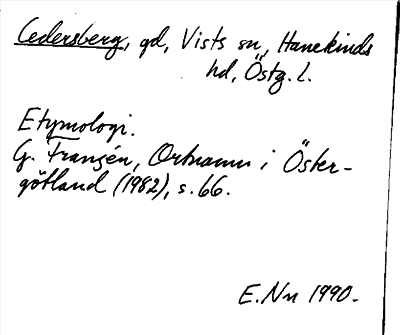 Cedersberg, gd, Vists sn, Hanekinds
hd, Östg. l.
Etymologi.
G. Franzén, Ortnamn i Öster-
götland (1982), s. 66.
E. Nn 1990.